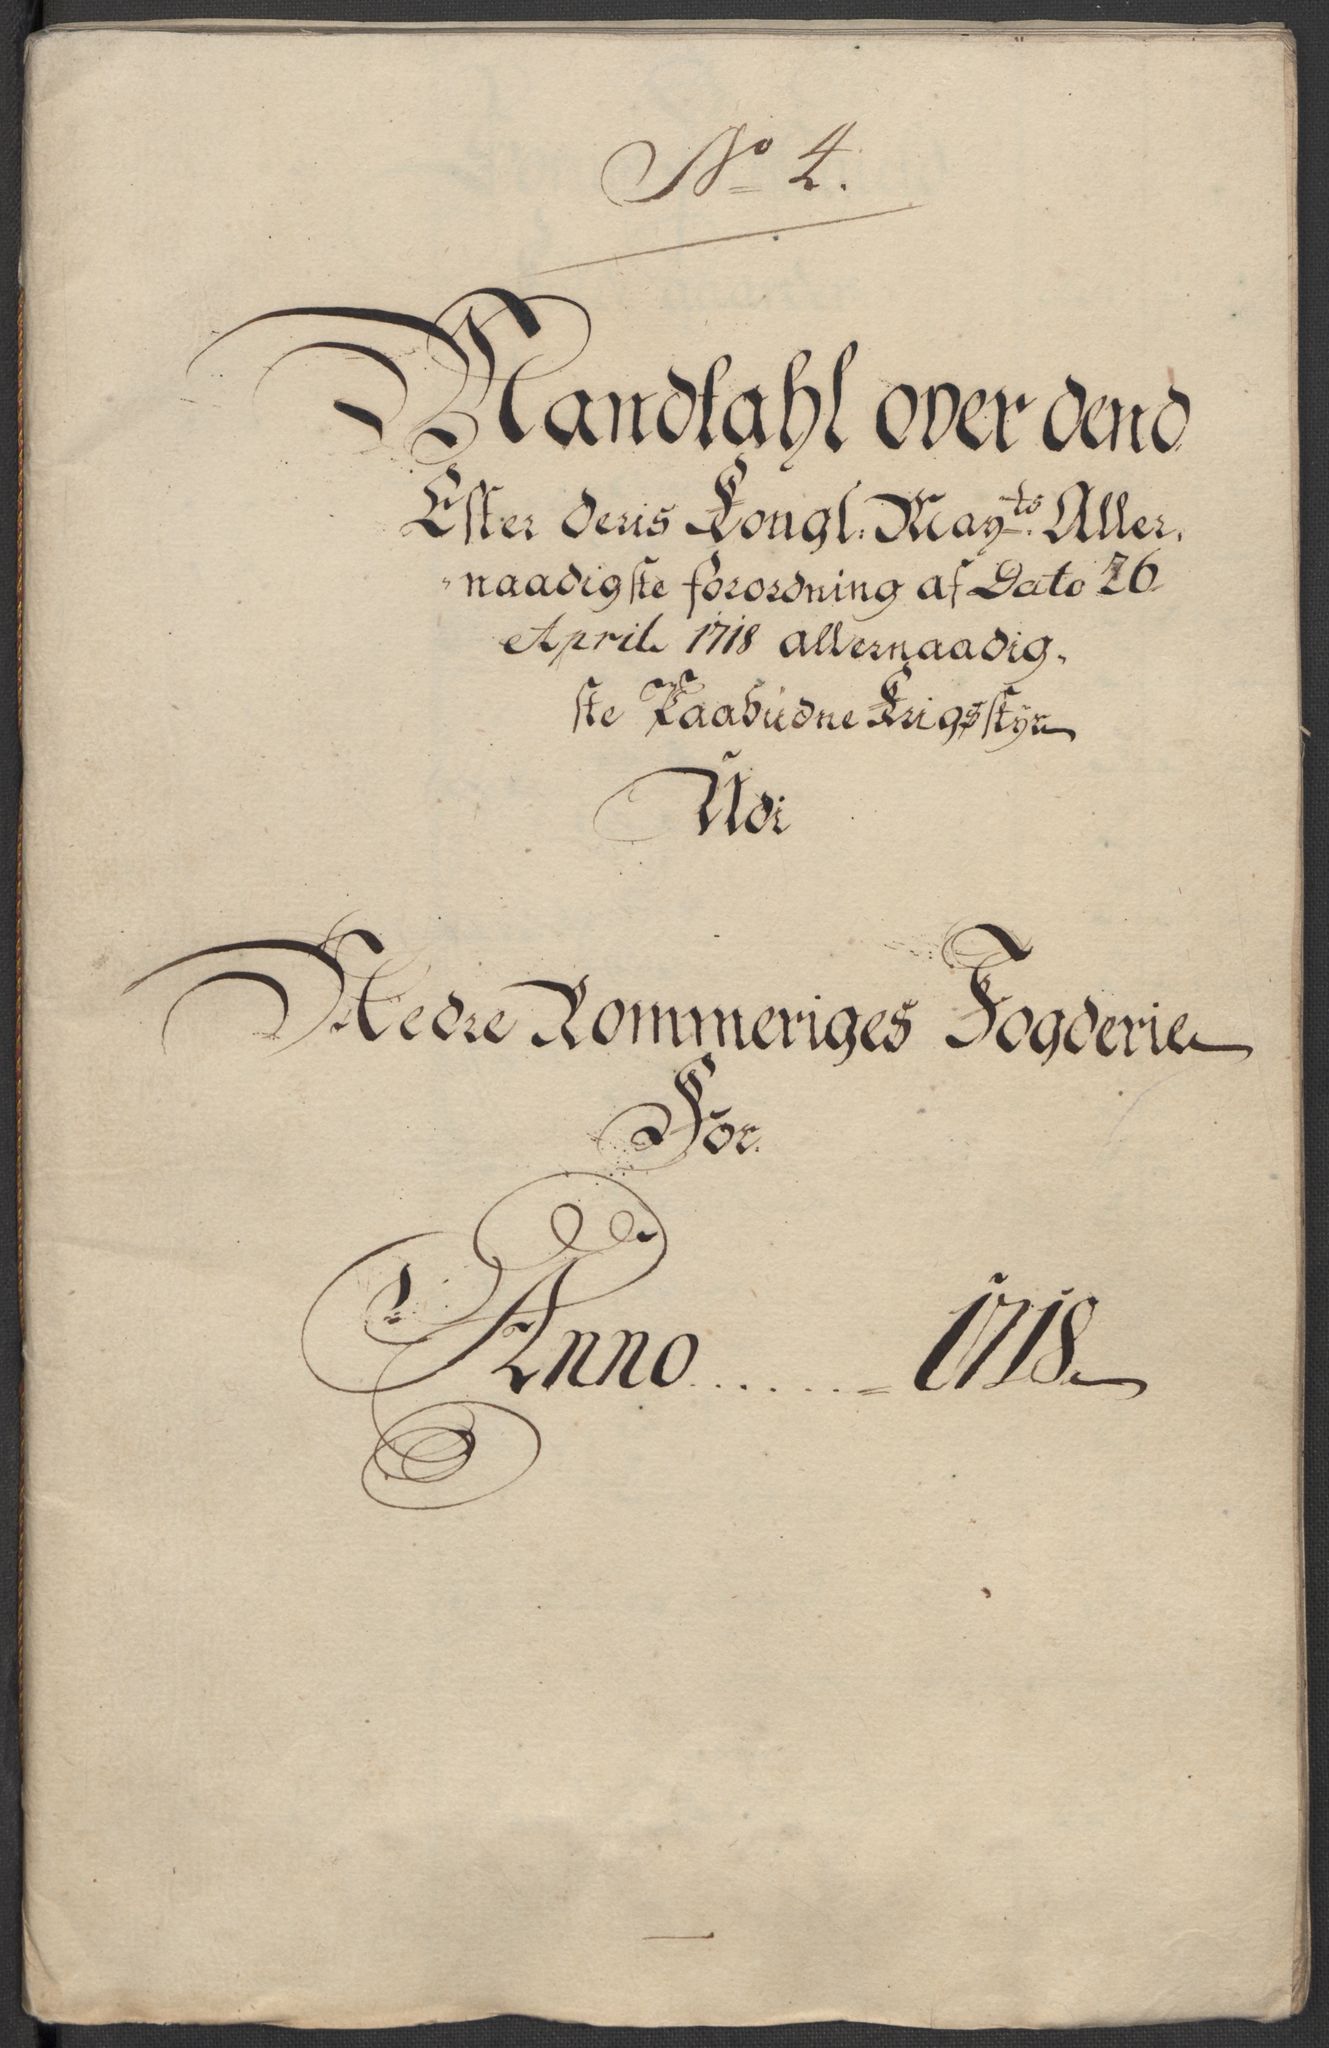 No 4.
Mandtahl over dend
Efter deris Kongl: Mayts. Aller,
naadigste forordning af Dato 26
April 1718 allernaadig,
ste Paabudne Krigsstyr
Udi
Nedre Rommeriges Fogderie
For
Anno ...... = 1718